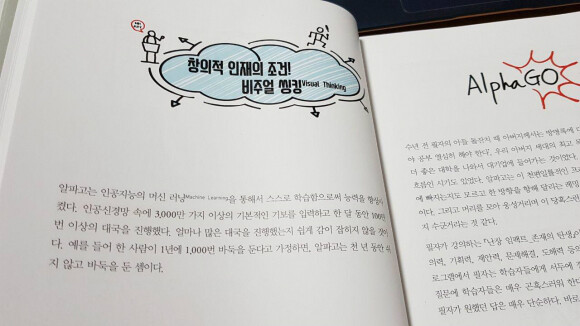 창의적 인재의 조건!
비주얼 씽킹Visual Thinking
알파고는 인공지능의 머신 러닝Machine Learning을 통해서 스스로 학습함으로써 능력을 향상시
켰다. 인공신경망 속에 3,000만 가지 이상의 기본적인 기보를 입력하고 한 달 동안 100만
번 이상의 대국을 진행했다. 얼마나 많은 대국을 진행했는지 쉽게 감이 잡히지 않을 것이
다. 예를 들어 한 사람이 1년에 1,000번 바둑을 둔다고 가정하면, 알파고는 천 년 동안 쉬
지 않고 바둑을 둔 셈이다.
AlphaGO
수년 전 필자의 아들 돌잔치 때 아버지께서는 방명록에
야 공부 열심히 해야 한다". 우리 아버지 세대의 최고
더 좋은 대학을 나와서 대기업에 들어가는 것이었다.
호황인 시기도 있었다. 알파고는 이 천편일률적인
에 빠지는지도 모르고 한 방향을 향해 달리는 레밍
다. 그리고 머리를 모아 웅성거리며 이 당혹스런
지 수군거리는 것 같다.
필자가 강의하는 『난장 임팩트, 존재의 탄생』
의력, 기획력, 제안력, 문제해결, 도해력 등
로그램에서 필자는 학습자들에게 서두에
질문에 학습자들은 매우 곤혹스러워 한다
필자가 원했던 답은 매우 단순하다. 바로